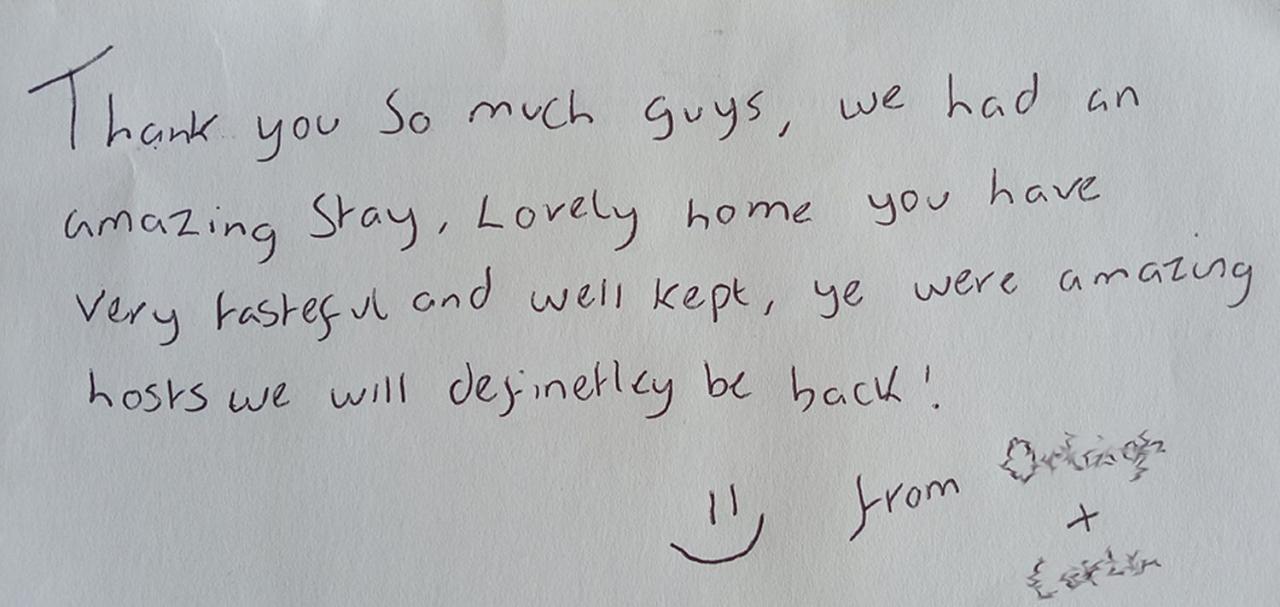 Thank you so much guys, we had an
amazing stay, Lovely home you have
very tasteful and well kept, ye were amazing
hosts we will definetley be back!
from
+